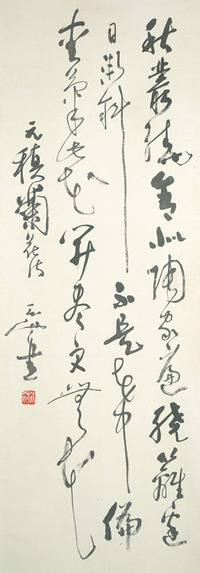 秋叢繞舍似陶家遍繞籬邊
日漸斜不是花中偏
愛菊此花開盡更無花
元稹菊花诗
書